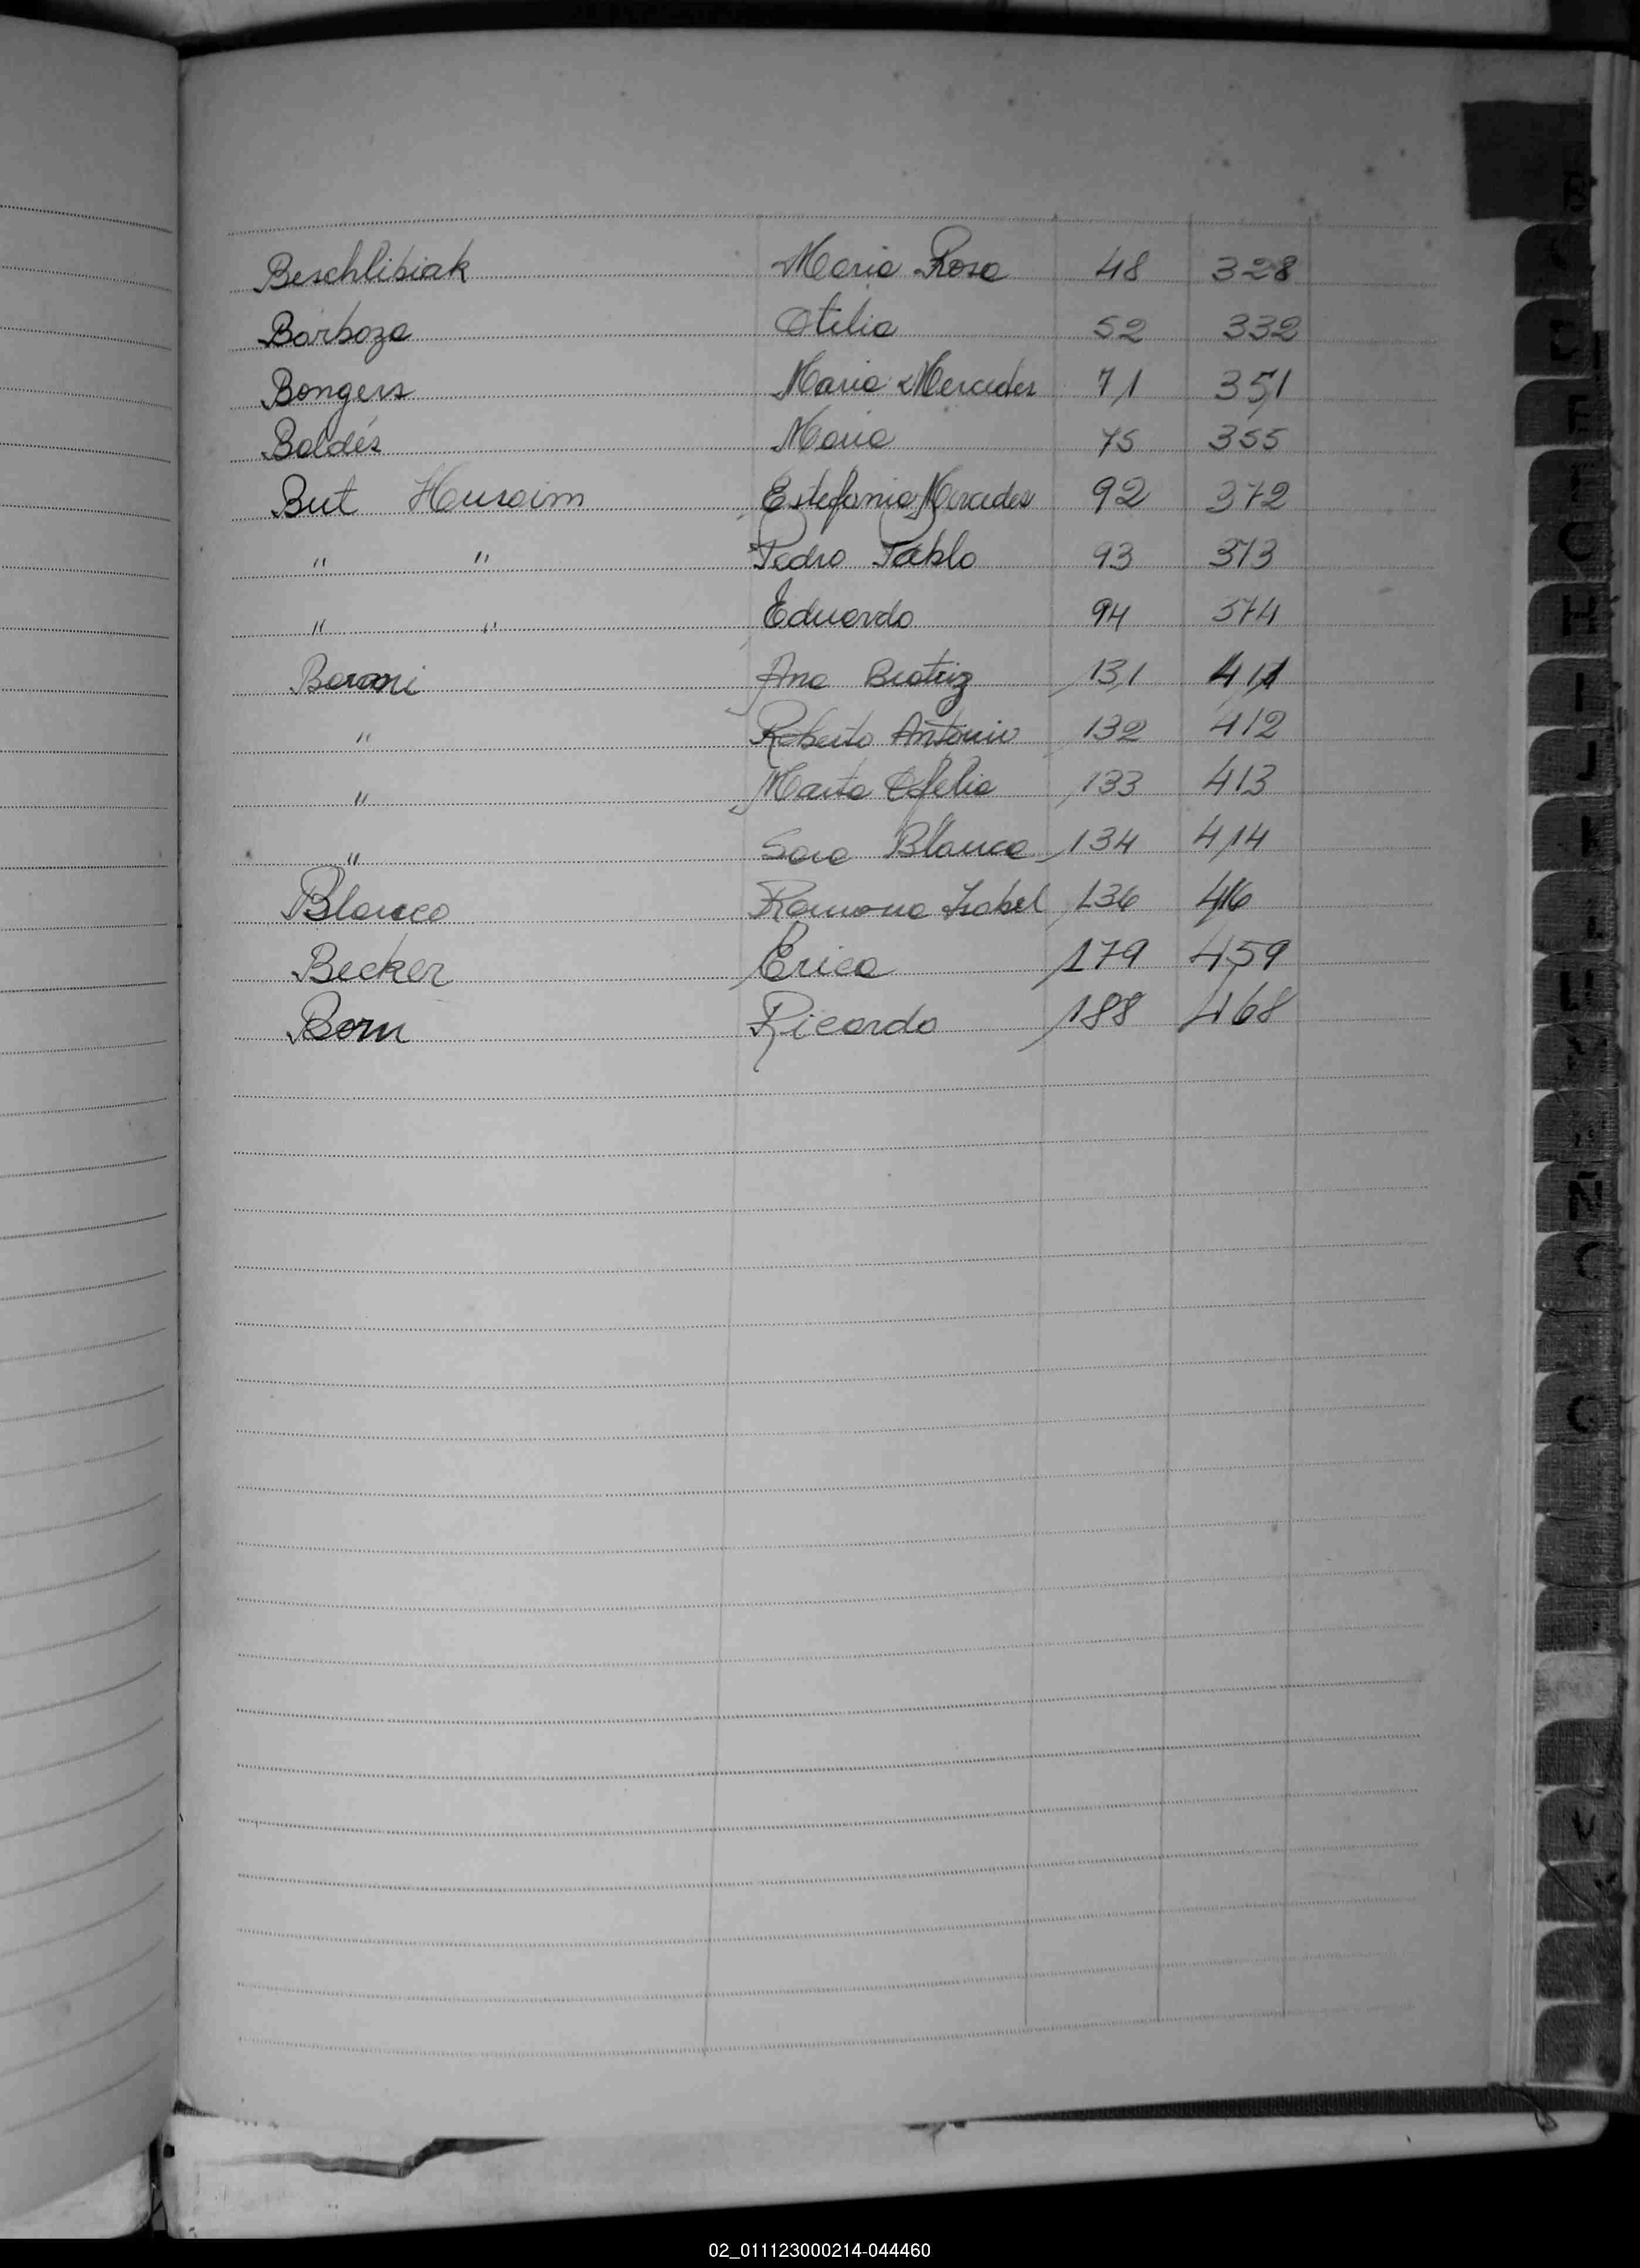 Beschlibiak Maria Rosa 48 328
Barboza Otilia 52 332
Bongers Maria Mercedes 71 351
Baldés Maria 75 355
But Husaim Estefania Mercedes 92 372
" " Pedro Pablo 93 373
" " Eduardo 94 374
Baroni Ana Beatriz 131 411
" Roberto Antonio 132 412
" Marta Ofelia 133 413
" Sara Blanca 134 414
Blanco Ramona Isabel 136 416
Becker Erica 179 459
Born Ricardo 188 468
02_011123000214-044460